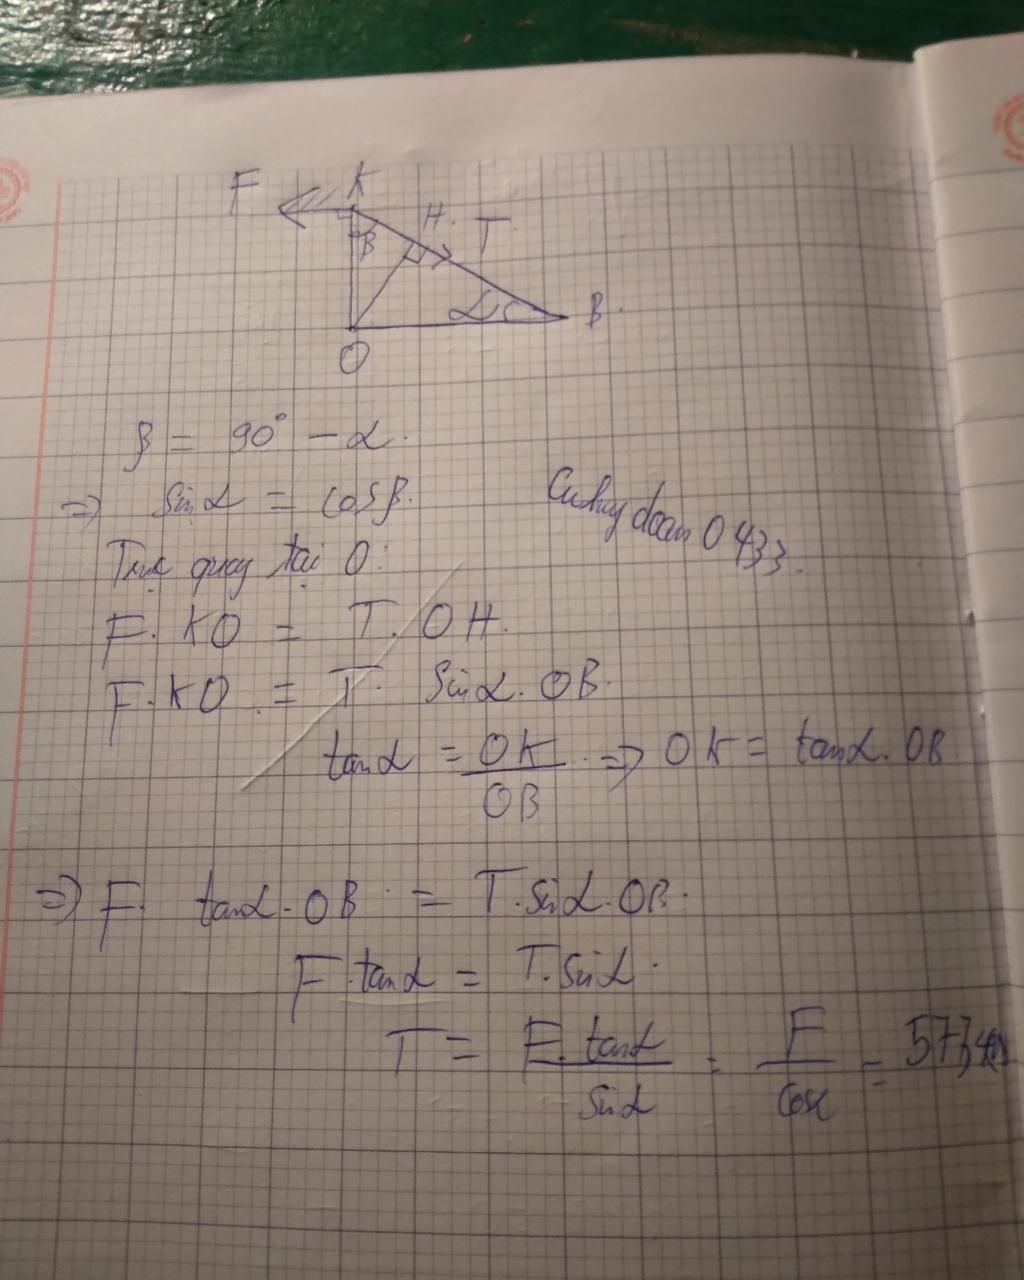 F K
H. T
β
α B.
O
β = 90° - α.
=> sinα = cosβ.
Cuhuy doan 0433.
Trục quay tại O:
F. KO = T. OH.
F. KO = T. sinα. OB.
tanα = OK / OB => OK = tanα. OB
=> F. tanα. OB = T. sinα. OB.
F. tanα = T. sinα.
T = F. tanα / sinα = F / cosα =